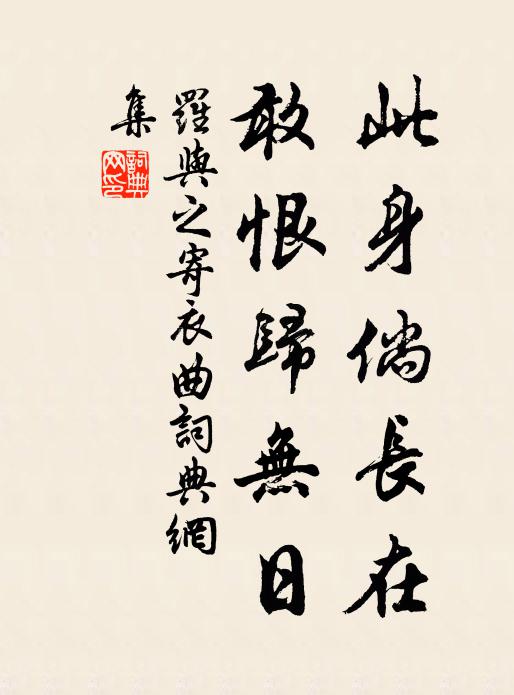 此身倘長在
敢恨歸無日
羅與之寄衣曲詞典網
集
詞典網印